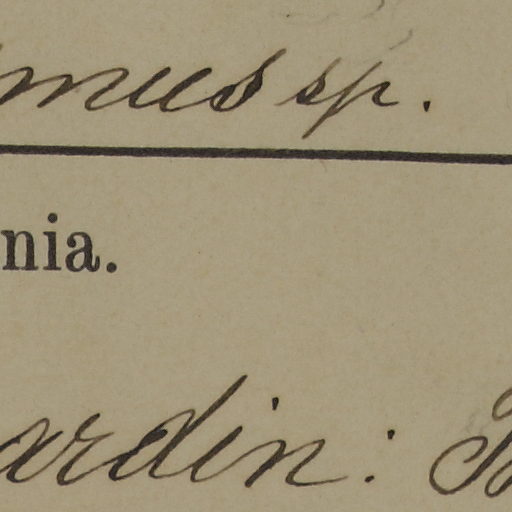 mus sp.
nia.
ardin: